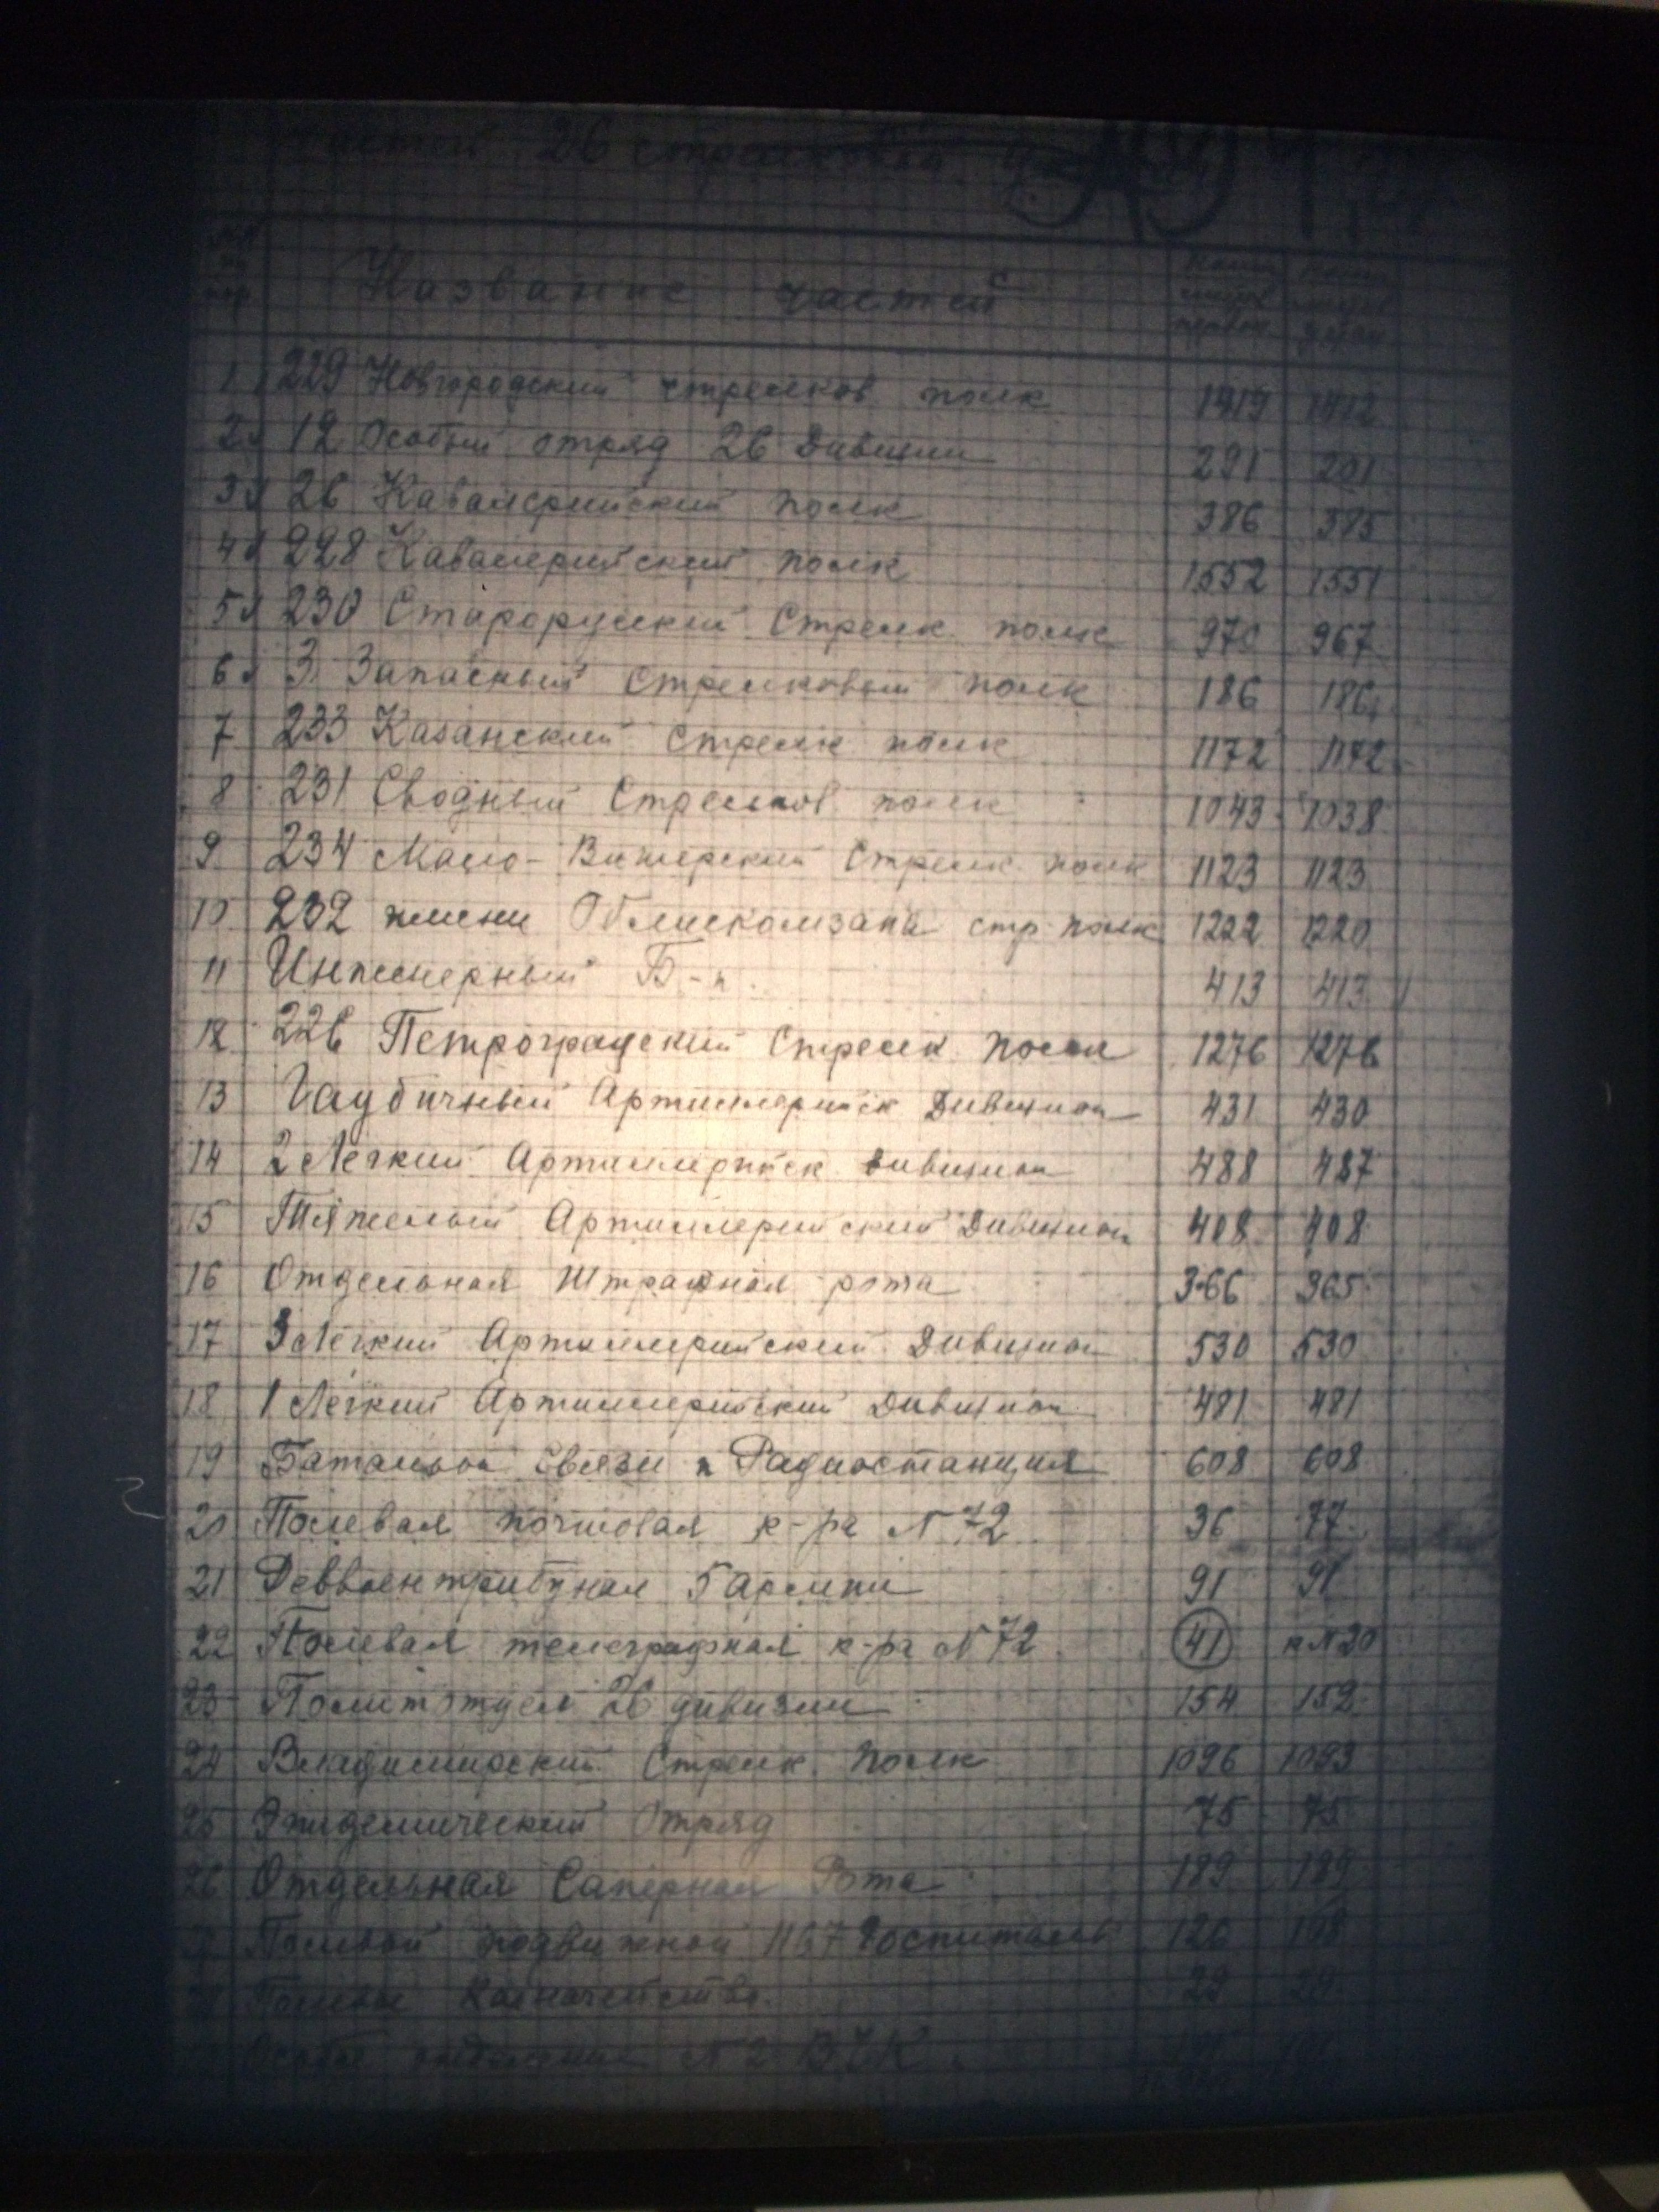 частей 26 стрелковой
Название частей
1 229 Новгородский стрелков полк 1419 1412
2 12 Особый отряд 26 Дивизии 291 201
3 26 Кавалерийский полк 386 385
4 228 Кавалерийский полк 1552 1551
5 230 Старорусский Стрелк полк 970 967
6 3 Запасный Стрелковый полк 186 186
7 233 Казанский Стрелк полк 1172 1172
8 231 Сводный Стрелков полк 1043 1038
9 234 Мало-Вишерский Стрелк полк 1123 1123
10 232 имени Облискомзапа стр. полк 1222 1220
11 Инженерный Б-н 413 413
12 226 Петроградский Стрелк полк 1276 1276
13 Гаубичный Артиллерийск Дивизион 431 430
14 2 Легкий Артиллерийск дивизион 488 487
15 Тяжелый Артиллерийский Дивизион 408 408
16 Отдельная Штрафная рота 366 365
17 3 Легкий Артиллерийский Дивизион 530 530
18 1 Легкий Артиллерийский Дивизион 481 481
19 Батальон Связи и Радиостанция 608 608
20 Полевая почтовая к-ра N 72 36 77
21 Реввоентрибунал 5 армии 91 91
22 Полевая телеграфная к-ра N 72 41 к N 20
23 Политотдел 26 дивизии 154 152
24 Владимирский Стрелк. полк 1096 1093
25 Эпидемический Отряд 75 75
26 Отдельная Саперная Рота 189 189
Полевой подвижной 1167 Госпиталь 126 108
Полевое Казначейство 29 29
Особое отделение N 2 ВЧК